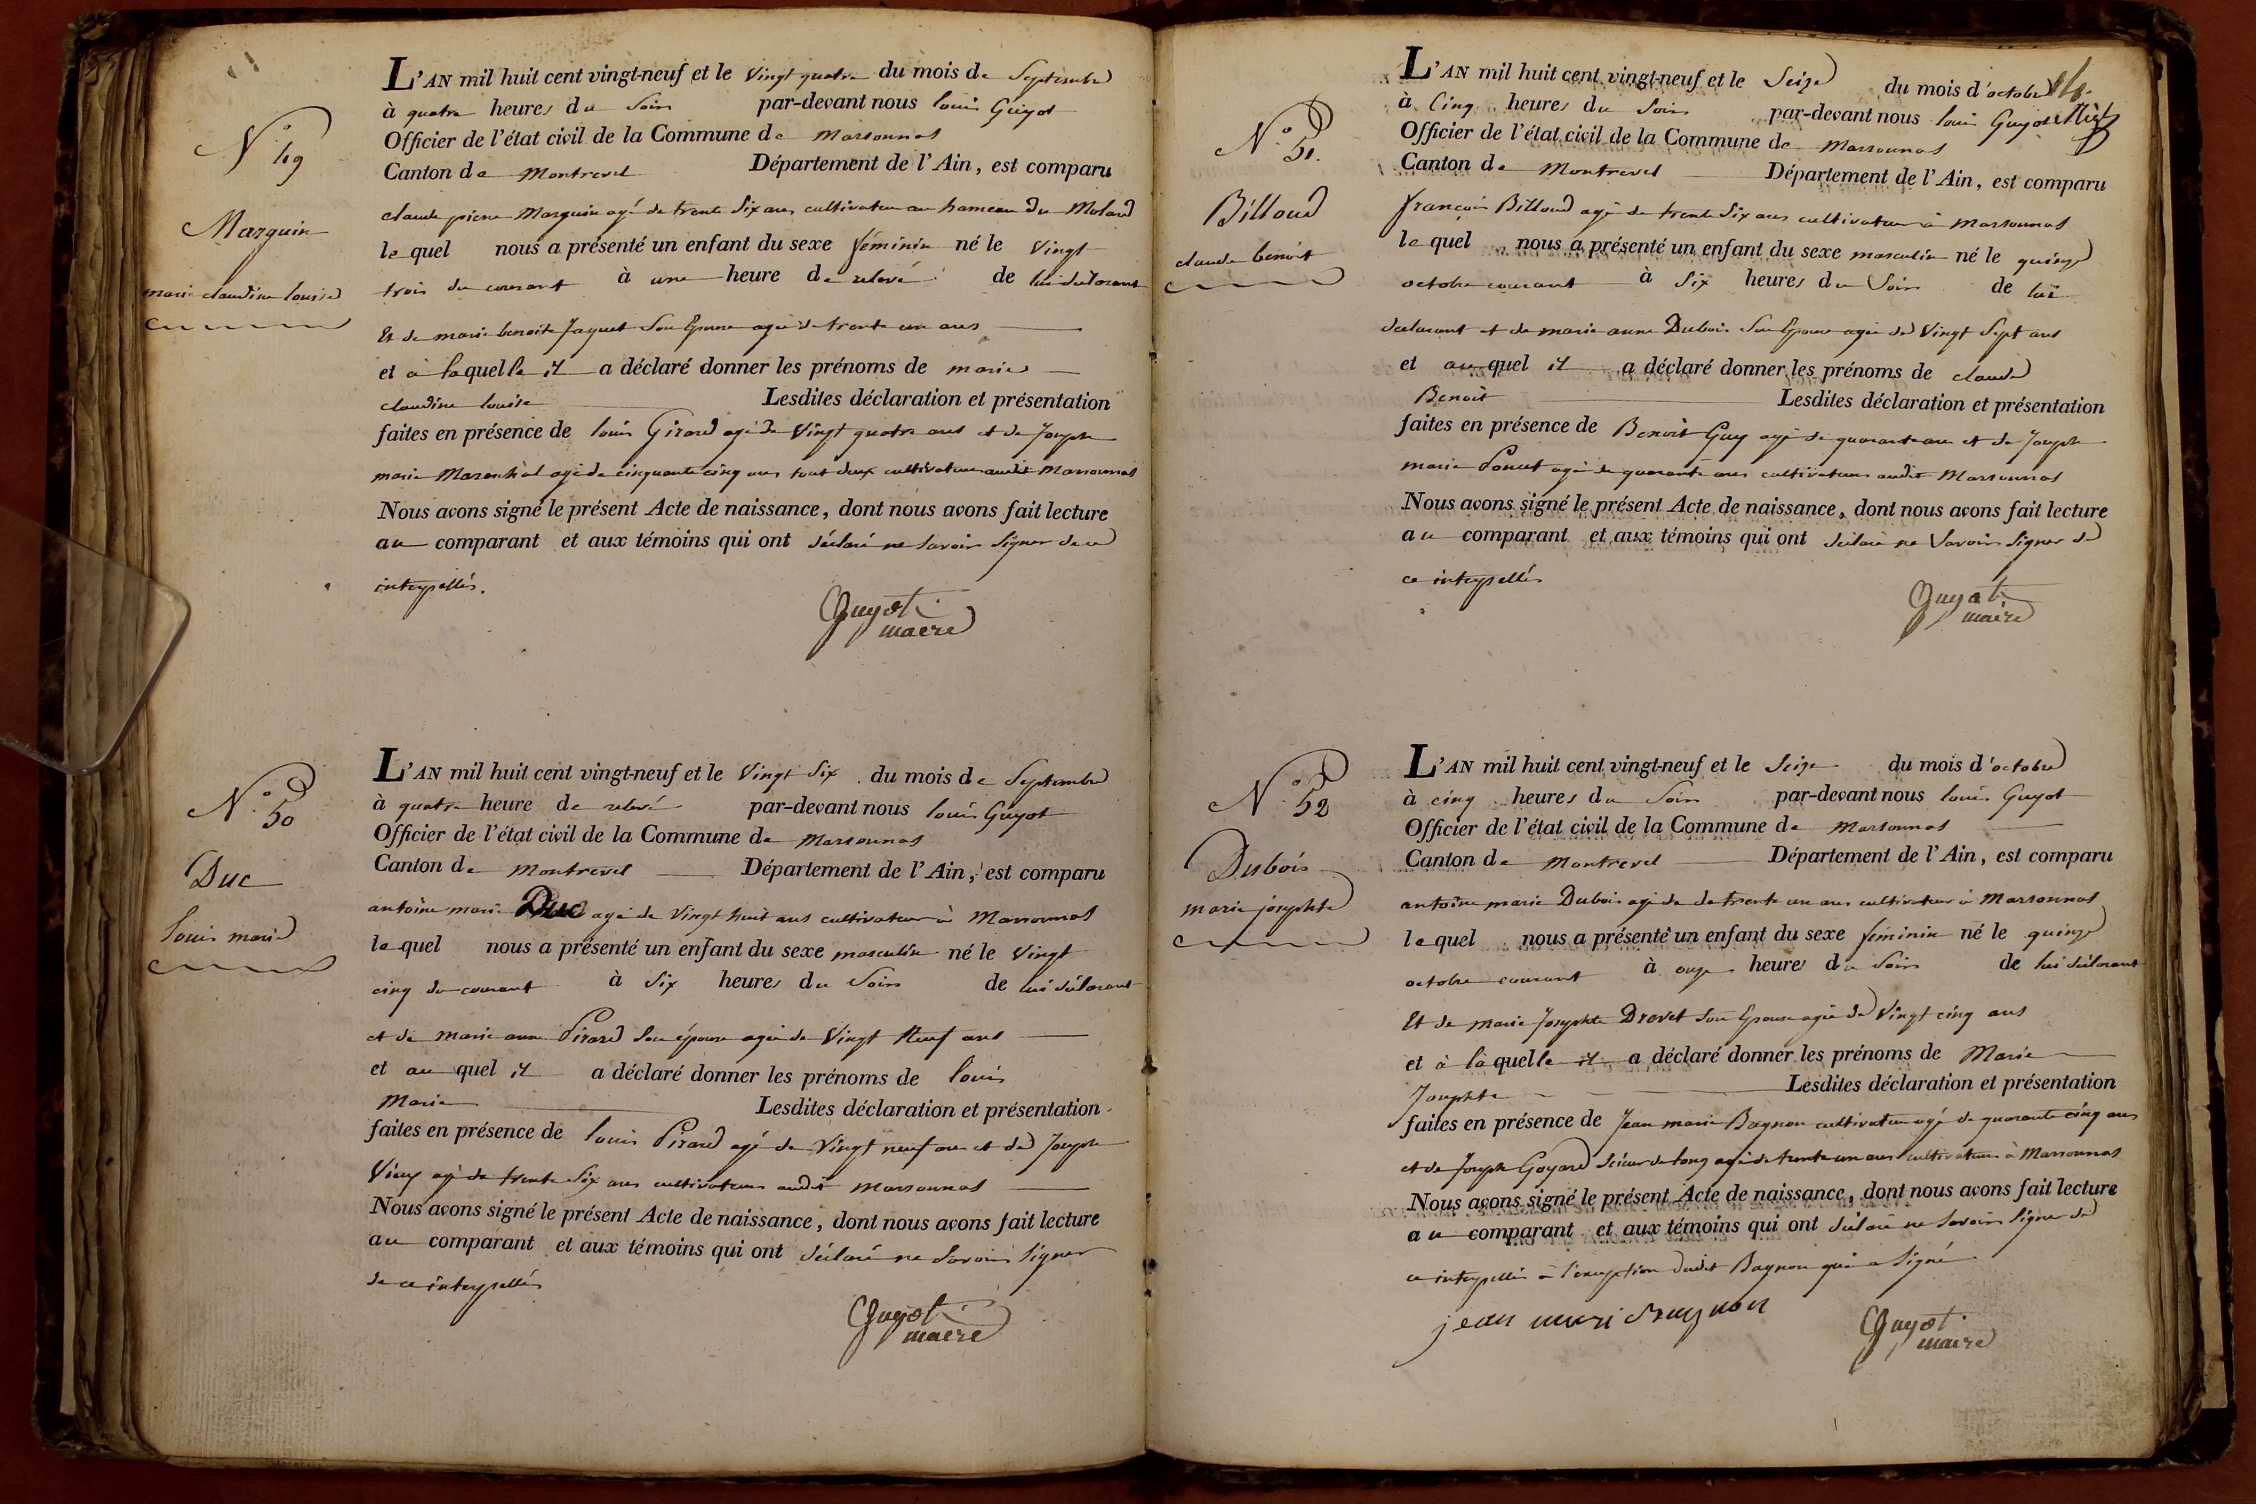 N.° 49
Marguin
marie claudine louise
L'AN mil huit cent vingt-neuf et le Vingt quatre du mois de Septembre
à quatre heures du Soir par-devant nous louis Guyot
Officier de l'état civil de la Commune de Marsonnas
Canton de Montrevel Département de l'Ain, est comparu
claude pierre Marguin agé de trente Six ans cultivateur au hameau du Molard
le quel nous a présenté un enfant du sexe féminin né le Vingt
trois du courant à une heure de relevé de lui déclarant
Et de marie benoite Jaquet Son Epouse agée de trente un ans
et à laquelle il a déclaré donner les prénoms de marie
claudine louise Lesdites déclaration et présentation
faites en présence de louis Girard agé de Vingt quatre ans et de Joseph
marie Marechal agé de cinquante cinq ans tout deux cultivateurs audit Marsonnas
Nous avons signé le présent Acte de naissance, dont nous avons fait lecture
au comparant et aux témoins qui ont déclaré ne Savoir Signer de ce
interpellés.
Guyot
maire
N.° 50
Duc
louis marie
L'AN mil huit cent vingt-neuf et le Vingt Six du mois de Septembre
à quatre heure de relevé par-devant nous louis Guyot
Officier de l'état civil de la Commune de Marsonnas
Canton de Montrevel Département de l'Ain, est comparu
antoine marie Duc agé de Vingt huit ans cultivateur à Marsonnas
le quel nous a présenté un enfant du sexe masculin né le Vingt
cinq du courant à Six heures du Soir de lui déclarant
et de marie anne Pirard Son épouse agée de Vingt Neuf ans
et au quel il a déclaré donner les prénoms de louis
Marie Lesdites déclaration et présentation
faites en présence de louis Pirard agé de Vingt neuf ans et de Joseph
Vieux agé de trente Six ans cultivateurs audit Marsonnas
Nous avons signé le présent Acte de naissance, dont nous avons fait lecture
au comparant et aux témoins qui ont déclaré ne Savoir Signer
de ce interpellés
Guyot
maire
N.° 51.
Billoud
claude benoit
L'AN mil huit cent vingt-neuf et le Seize du mois d'octobre
à Cinq heures du Soir par-devant nous louis Guyot
Officier de l'état civil de la Commune de Marsonnas
Canton de Montrevel Département de l'Ain, est comparu
françois Billoud agé de trente Six ans cultivateur à Marsonnas
le quel nous a présenté un enfant du sexe masculin né le quinze
octobre courant à Six heures du Soir de lui
declarant et de marie anne Dubois Son Epouse agée de Vingt Sept ans
et au quel il a déclaré donner les prénoms de claude
Benoit Lesdites déclaration et présentation
faites en présence de Benoit Guy agé de quarante ans et de Joseph
marie Poncet agé de quarante ans cultivateurs audit Marsonnas
Nous avons signé le présent Acte de naissance, dont nous avons fait lecture
au comparant et aux témoins qui ont déclaré ne Savoir Signer de
ce interpellés
Guyot
maire
N.° 52
Dubois
marie josephte
L'AN mil huit cent vingt-neuf et le Seize du mois d'octobre
à cinq heures du Soir par-devant nous louis Guyot
Officier de l'état civil de la Commune de Marsonnas
Canton de Montrevel Département de l'Ain, est comparu
antoine marie Dubois agé de de trente un ans cultivateur à Marsonnas
le quel nous a présenté un enfant du sexe féminin né le quinze
octobre courant à onze heures du Soir de lui déclarant
Et de marie Josephte Drevet Son Epouse agée de Vingt cinq ans
et à laquelle il a déclaré donner les prénoms de Marie
Josephte Lesdites déclaration et présentation
faites en présence de Jean marie Bagnon cultivateur agé de quarante cinq ans
et de Joseph Goyard Scieur de long agé de trente un ans cultivateurs à Marsonnas
Nous avons signé le présent Acte de naissance, dont nous avons fait lecture
au comparant et aux témoins qui ont déclaré ne Savoir Signer de
ce interpellés à l'exception dudit Bagnon qui a Signé
Guyot
maire